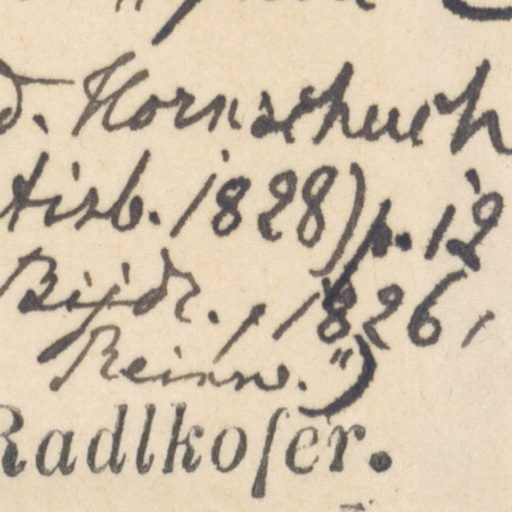 d. Hornschuch
tisb. 1828) p. 12
Bijdr., 1826,
Reinw.")
Radlkoſer.